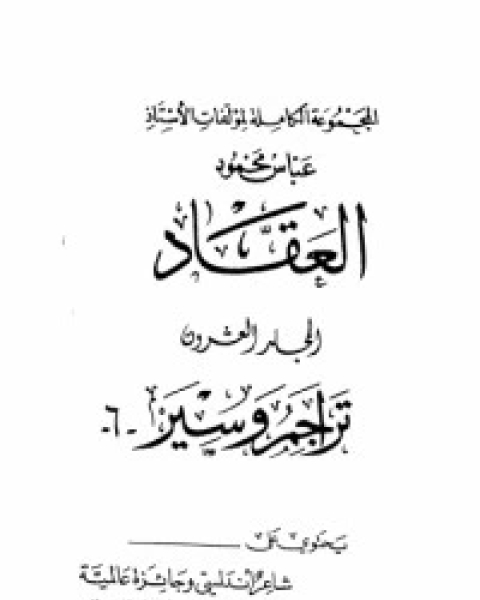 المجموعة الكاملة لمؤلفات الأستاذ
عباس محمود
العقاد
المجلد العشرون
تراجم وسير -٦-
يحتوي على
شاعر أندلسي وجائزة عالمية